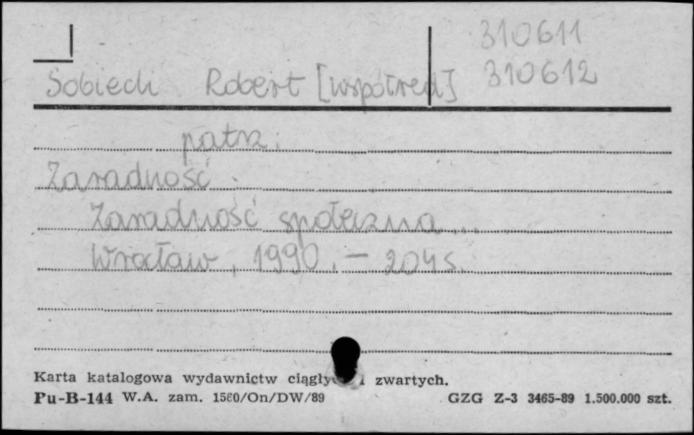 310611
Sobiech Robert [współred] 310612
patrz.
Zaradność.
Zaradność społeczna...
Wrocław, 1990. – 204 s.
Karta katalogowa wydawnictw i zwartych.
Pu-B-144 W.A. zam. 1560/On/DW/89 GZG Z-3 3465-89 1.500.000 szt.